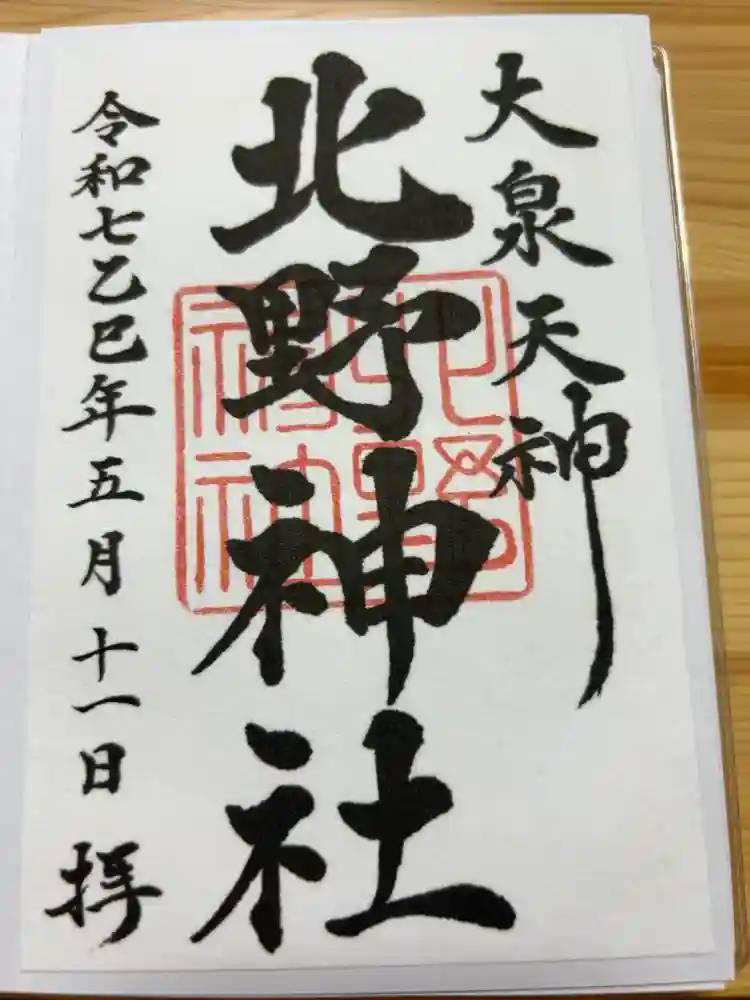 大泉天神
北野神社
令和七乙巳年五月十一日 拝
北野神社